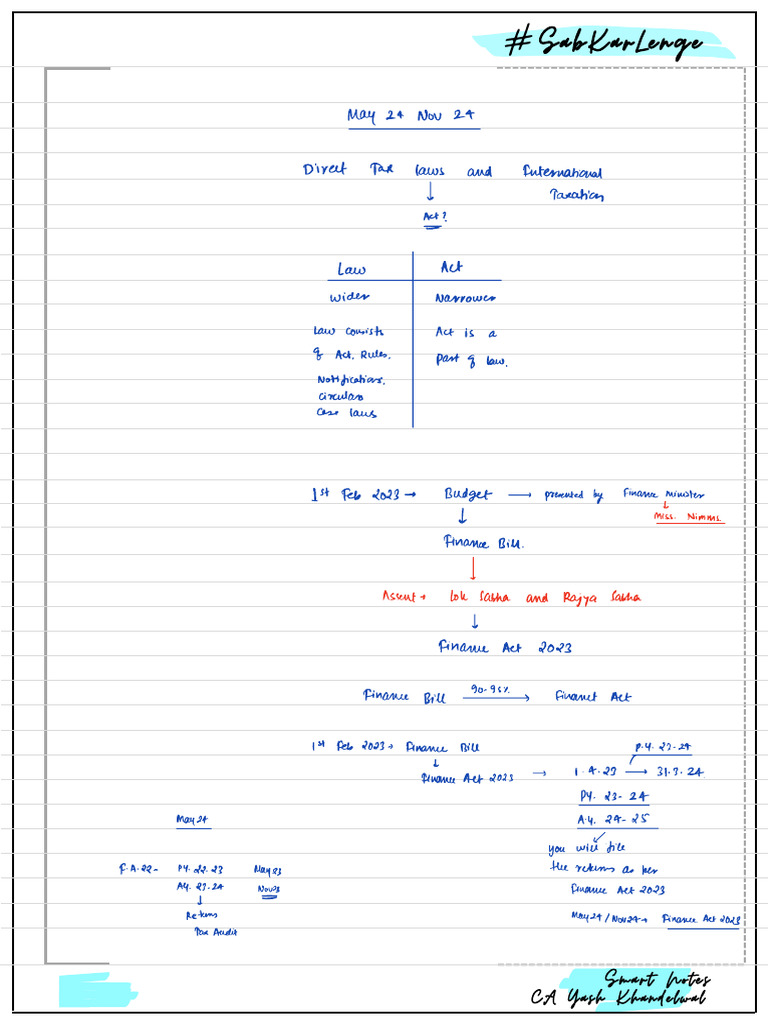 #SabKarLenge
May 24 Nov 24
Direct Tax laws and International
Taxation
Act?
Law Act
Wider Narrower
Law consists Act is a
of Act. Rules. Part of law.
Notifications.
Circulars
Case laws
1st Feb 2023 → Budget → presented by Finance minister
Miss. Nimms.
Finance Bill.
Assent → Lok Sabha and Rajya Sabha
Finance Act 2023
Finance Bill 90-95% → Finance Act
P.Y. 23-24
1st Feb 2023 → Finance Bill
Finance Act 2023 → 1.4.23 → 31.3.24
P.Y. 23-24
A.Y. 24-25
May 24
you will file
the returns as per
Finance Act 2023
F.A.22- P.Y. 22-23 May 23
A.Y. 23-24 Nov 23
Returns
Tax Audit
May 24/Nov 24 → Finance Act 2023
Smart Notes
CA Yash Khandelwal